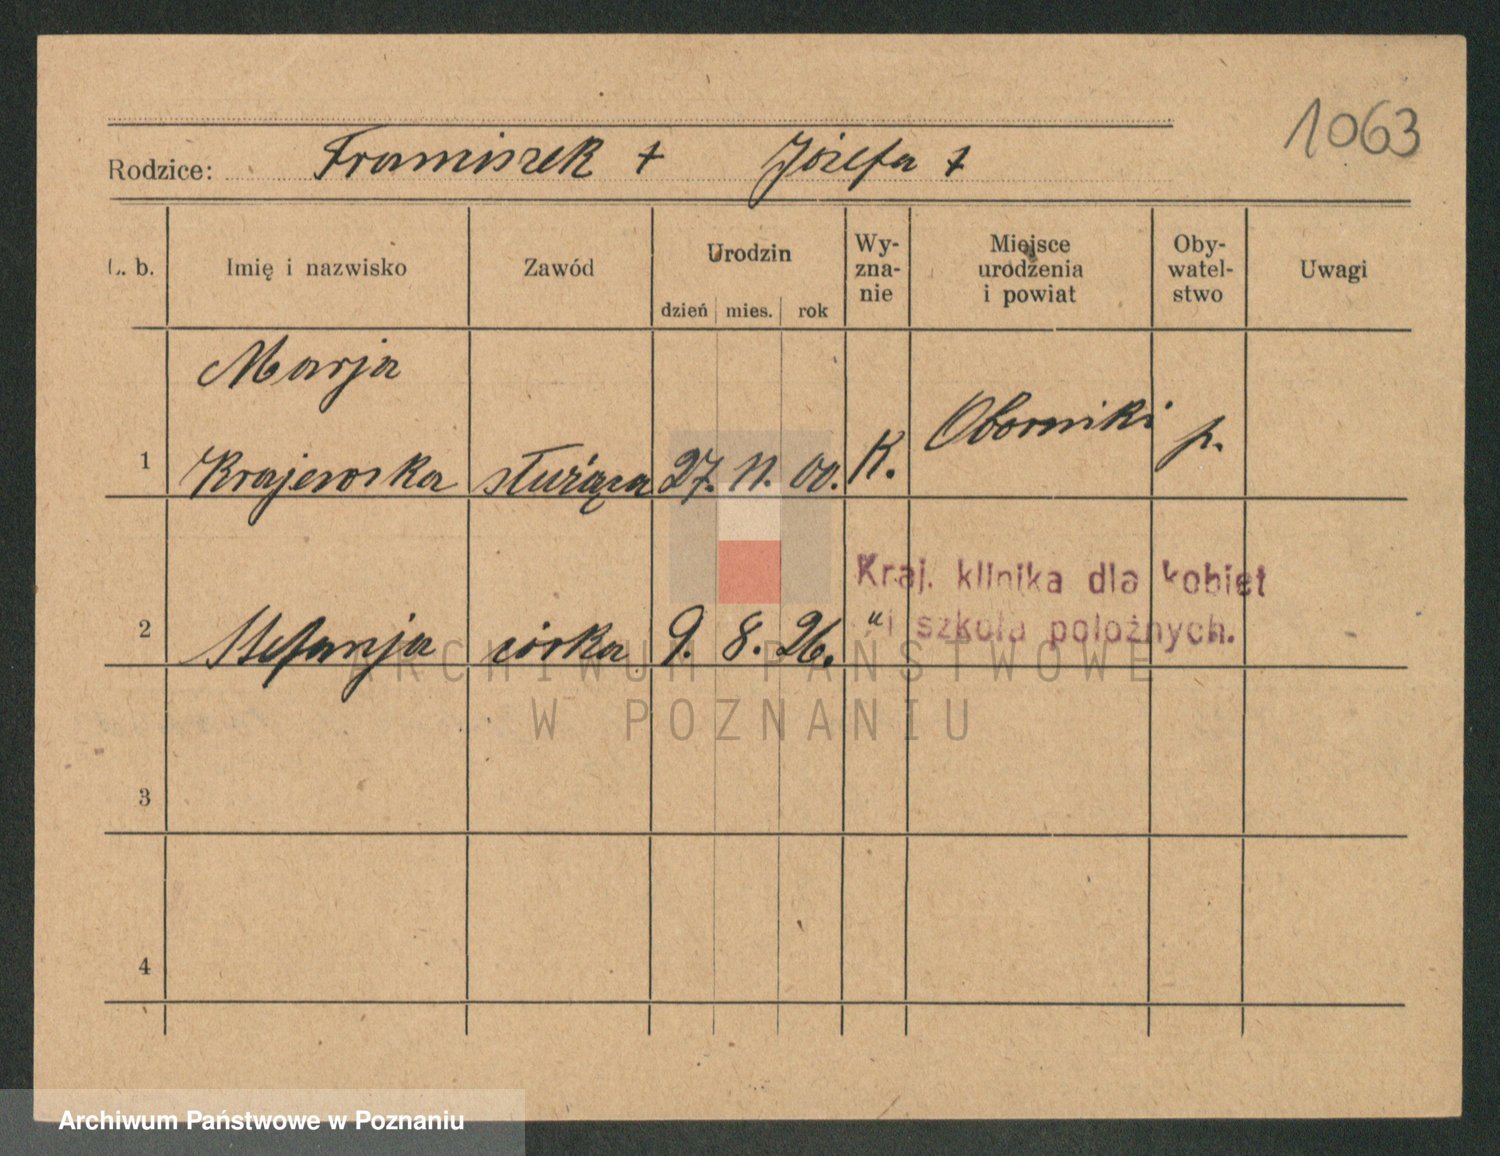 1063
Rodzice: Franciszek + Józefa +
L. b. Imię i nazwisko Zawód Urodzin dzień mies. rok Wy-zna-nie Miejsce urodzenia i powiat Oby-watel-stwo Uwagi
Marja
1 Krajewska służąca 27. 11. 00. K. Oborniki p.
Kraj. klinika dla kobiet
i szkoła położnych.
2 Stefanja córka 9. 8. 26. "
ARCHIWUM PAŃSTWOWE
W POZNANIU
3
4
Archiwum Państwowe w Poznaniu